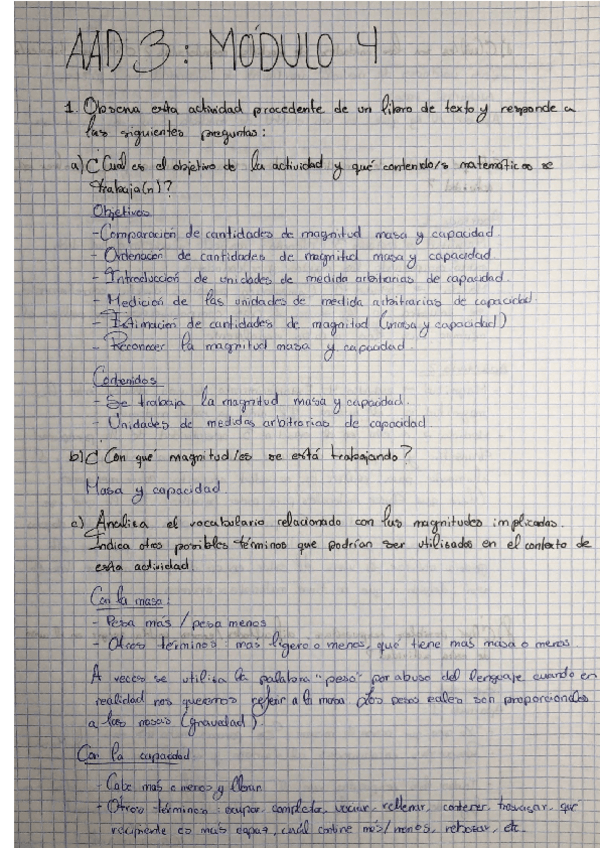 AAD 3: MÓDULO 4
1. Observa esta actividad procedente de un libro de texto y responde a
las siguientes preguntas:
a) ¿Cuál es el objetivo de la actividad y qué contenido/s matemáticos se
trabaja(n)?
Objetivos
- Comparación de cantidades de magnitud masa y capacidad
- Ordenación de cantidades de magnitud masa y capacidad
- Introducción de unidades de medida arbitrarias de capacidad.
- Medición de las unidades de medida arbitrarias de capacidad.
- Estimación de cantidades de magnitud (masa y capacidad)
- Reconocer la magnitud masa y capacidad.
Contenidos
- Se trabaja la magnitud masa y capacidad.
- Unidades de medidas arbitrarias de capacidad
b) ¿Con qué magnitud/es se está trabajando?
Masa y capacidad
c) Analiza el vocabulario relacionado con las magnitudes implicadas.
Indica otros posibles términos que podrían ser utilizados en el contexto de
esta actividad.
Con la masa:
- Pesa más / pesa menos
- Otros términos: más ligero o menos, qué tiene más masa o menos
A veces se utiliza la palabra "peso" por abuso del lenguaje cuando en
realidad nos queremos referir a la masa. Los pesos son proporcionales
a las masas (gravedad).
Con la capacidad
- Cabe más o menos y llenar
- Otros términos: ocupar, completar, vaciar, rellenar, contener, trasvasar, qué
recipiente es más capaz, cuál contiene más/menos, rebosar, etc.